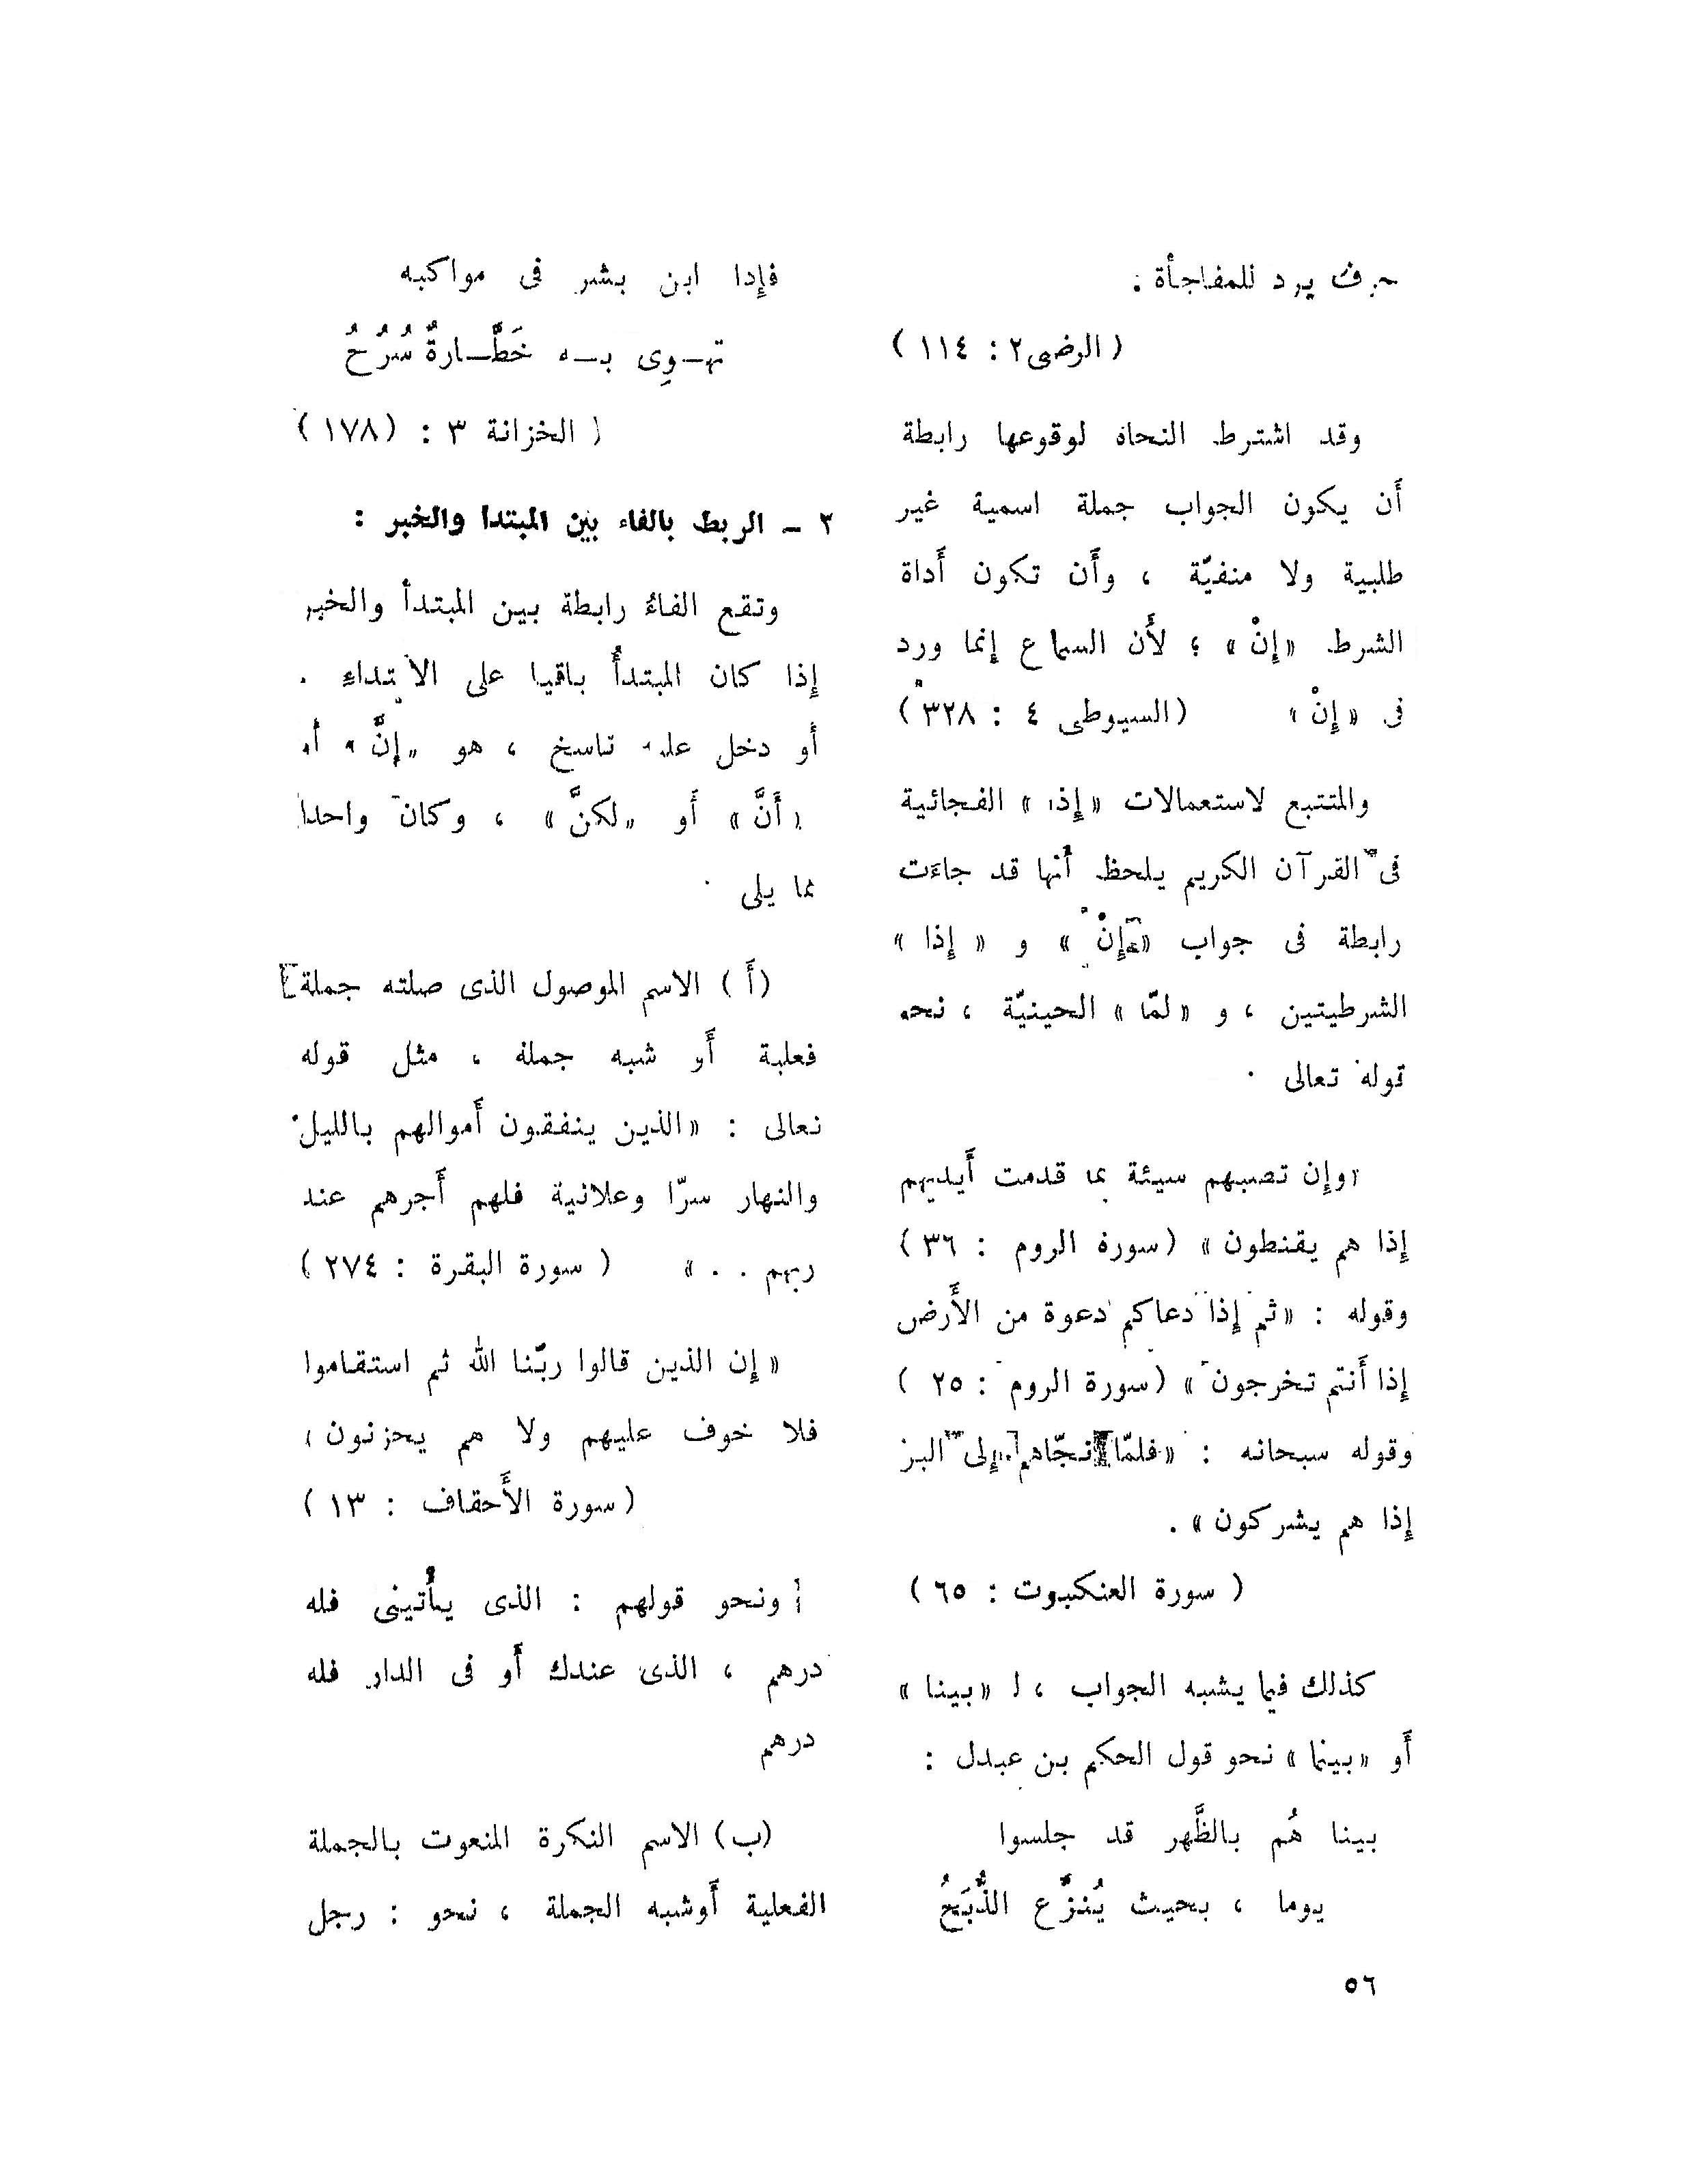 حرف يرد للمفاجأة .
( الرضى ٢ : ١١٤ )
وقد اشترط النحاة لوقوعها رابطة
أَن يكون الجواب جملة اسمية غير
طلبية ولا منفيّة ، وأَن تكون أَداة
الشرط «إِنْ» ؛ لأَن السماع إِنما ورد
فى «إِنْ» (السيوطى ٤ : ٣٢٨)
والمتتبع لاستعمالات «إِذا» الفجائية
فى القرآن الكريم يلحظ أَنها قد جاءَت
رابطة فى جواب «إِنْ» و «إِذا»
الشرطيتين ، و «لمّا» الحينيّة ، نحو
قوله تعالى
«وإِن تصبهم سيئة بما قدمت أَيديهم
إِذا هم يقنطون» (سورة الروم : ٣٦)
وقوله : «ثم إِذا دعاكم دعوة من الأَرض
إِذا أَنتم تخرجون» (سورة الروم : ٢٥)
وقوله سبحانه : «فلمّا نجّاهم إِلى البر
إِذا هم يشركون» .
( سورة العنكبوت : ٦٥ )
كذلك فيما يشبه الجواب ، لـ «بينا»
أَو «بينما» نحو قول الحكم بن عبدل :
بينا هُم بالظَّهر قد جلسوا
يوما ، بحيث يُنزَّع الذُّبَحُ
فإِذا ابن بشر فى مواكبه
تهـوِى بـه خَطَّـارةٌ سُرُحُ
( الخزانة ٣ : (١٧٨)
٣ - الربط بالفاء بين المبتدا والخبر :
وتقع الفاءُ رابطة بين المبتدأ والخبر
إِذا كان المبتدأُ باقيا على الابتداءِ .
أو دخل عليه ناسخ ، هو «إِنَّ» أو
«أَنَّ» أَو «لكنَّ» ، وكان واحدا
مما يلى
(أَ) الاسم الموصول الذى صلته جملة
فعلية أَو شبه جملة ، مثل قوله
تعالى : «الذين ينفقون أَموالهم بالليل
والنهار سرّا وعلانية فلهم أَجرهم عند
ربهم . . » ( سورة البقرة : ٢٧٤ )
«إِن الذين قالوا ربّنا الله ثم استقاموا
فلا خوف عليهم ولا هم يحزنون»
(سورة الأَحقاف : ١٣)
ونحو قولهم : الذى يأْتينى فله
درهم ، الذى عندك أَو فى الدار فله
درهم
(ب) الاسم النكرة المنعوت بالجملة
الفعلية أَوشبه الجملة ، نحو : رجل
٥٦